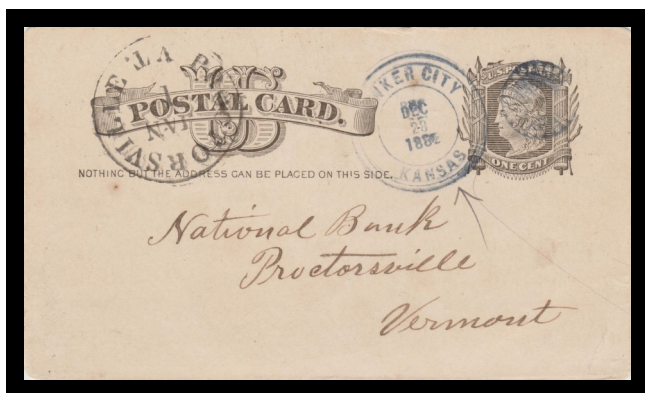 POSTAL CARD.
NOTHING BUT THE ADDRESS CAN BE PLACED ON THIS SIDE.
KER CITY
DEC
KANSAS
ONE CENT
National Bank
Proctorsville
Vermont